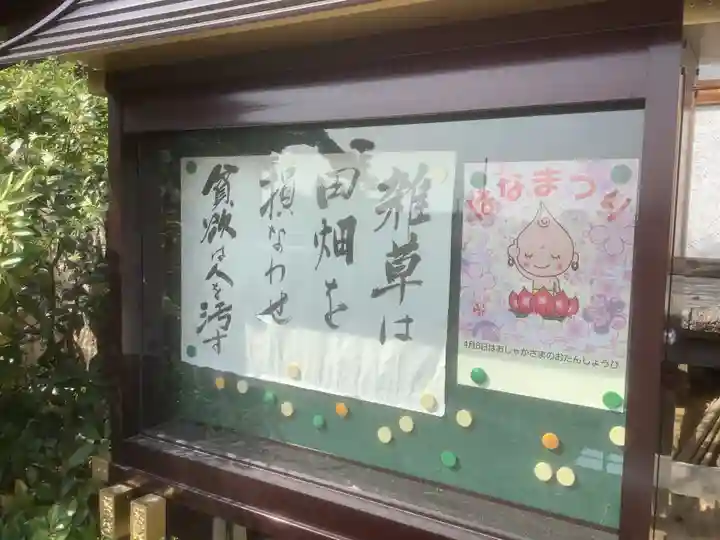 雑草は
田畑を
損なわせ
貧欲は人を汚す
はなまつり
4月8日はおしゃかさまのおたんじょうび